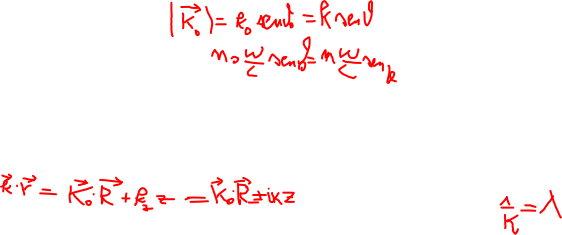 |K⃗₀| = k₀ senθ₀ = k senθ
n₀ ω/c senθ₀ = n ω/c senθ
k⃗·r⃗ = K⃗₀·R⃗ + k_z z = K⃗₀·R⃗ ± iκz
1/κ = λ